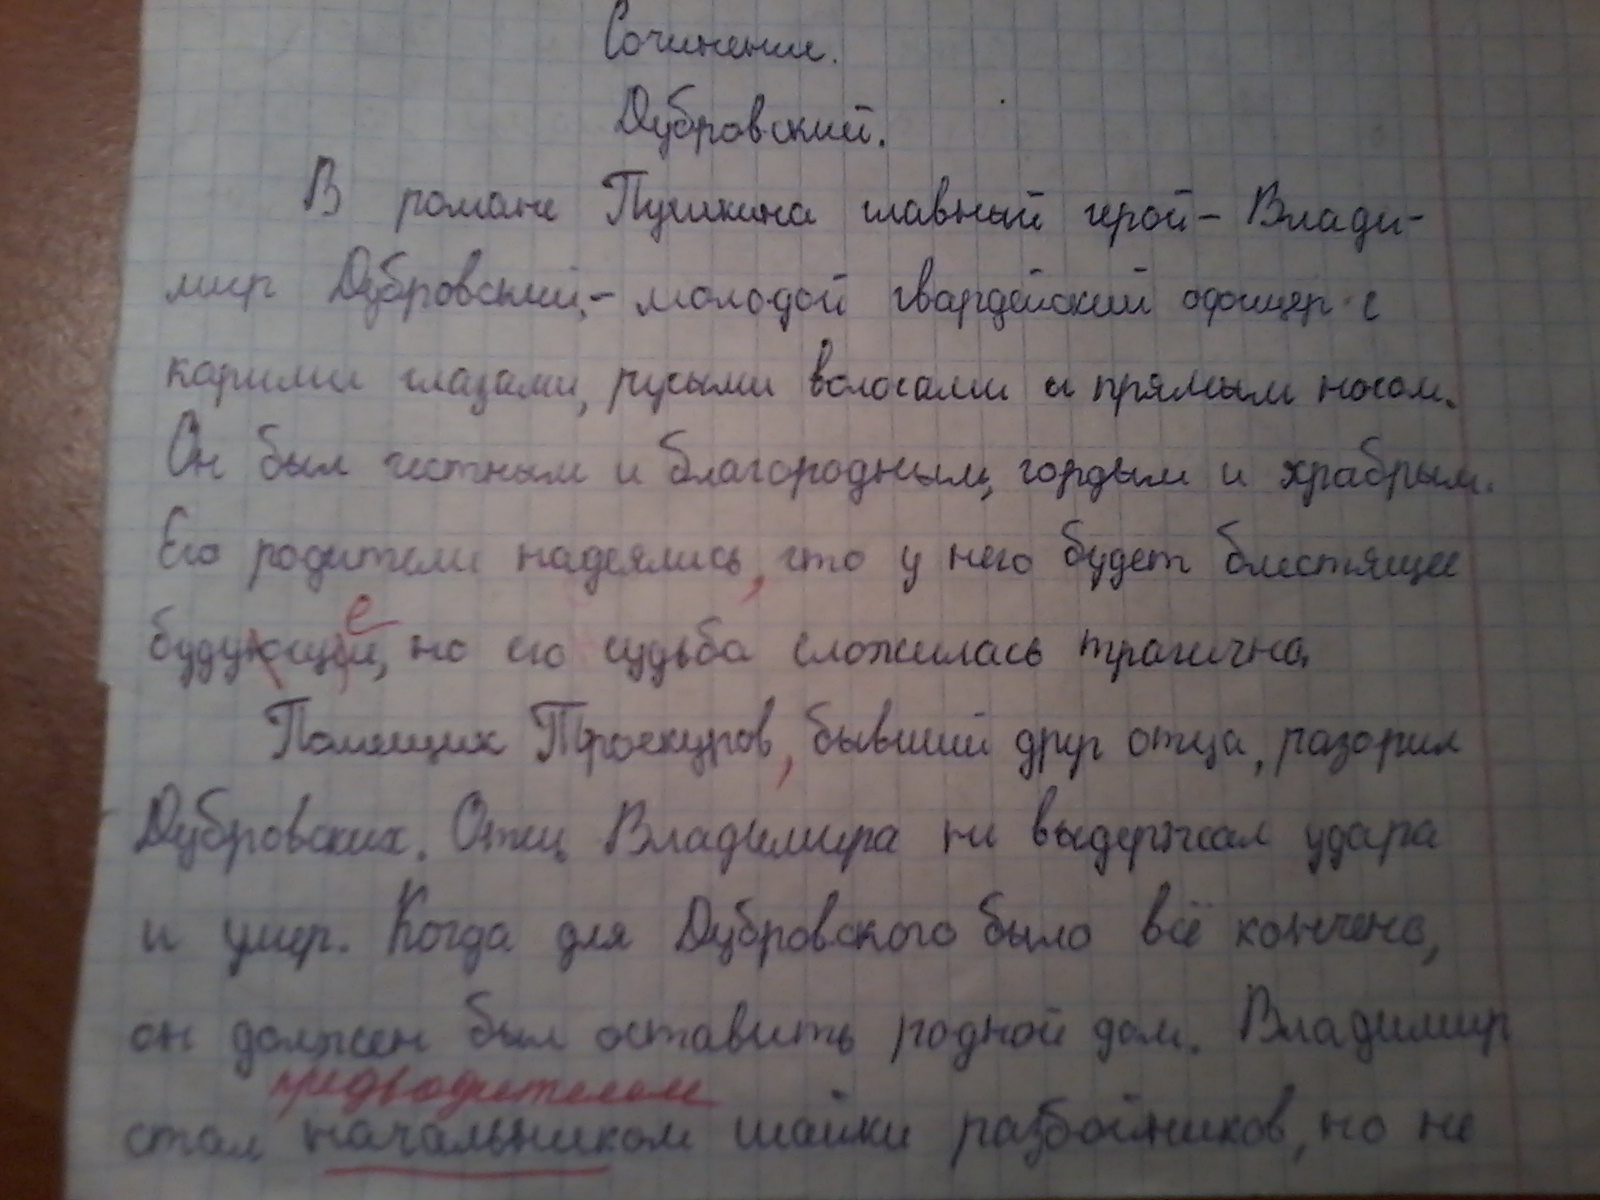 Сочинение.
Дубровский.
В романе Пушкина главный герой – Влади-
мир Дубровский, – молодой гвардейский офицер с
карими глазами, русыми волосами и прямым носом.
Он был честным и благородным, гордым и храбрым.
Его родители надеялись, что у него будет блестящее
будующие, но его судьба сложилась трагично.
е
Помещик Троекуров, бывший друг отца, разорил
Дубровских. Отец Владимира не выдержал удара
и умер. Когда для Дубровского было всё кончено,
он должен был оставить родной дом. Владимир
предводителем
стал начальником шайки разбойников, но не